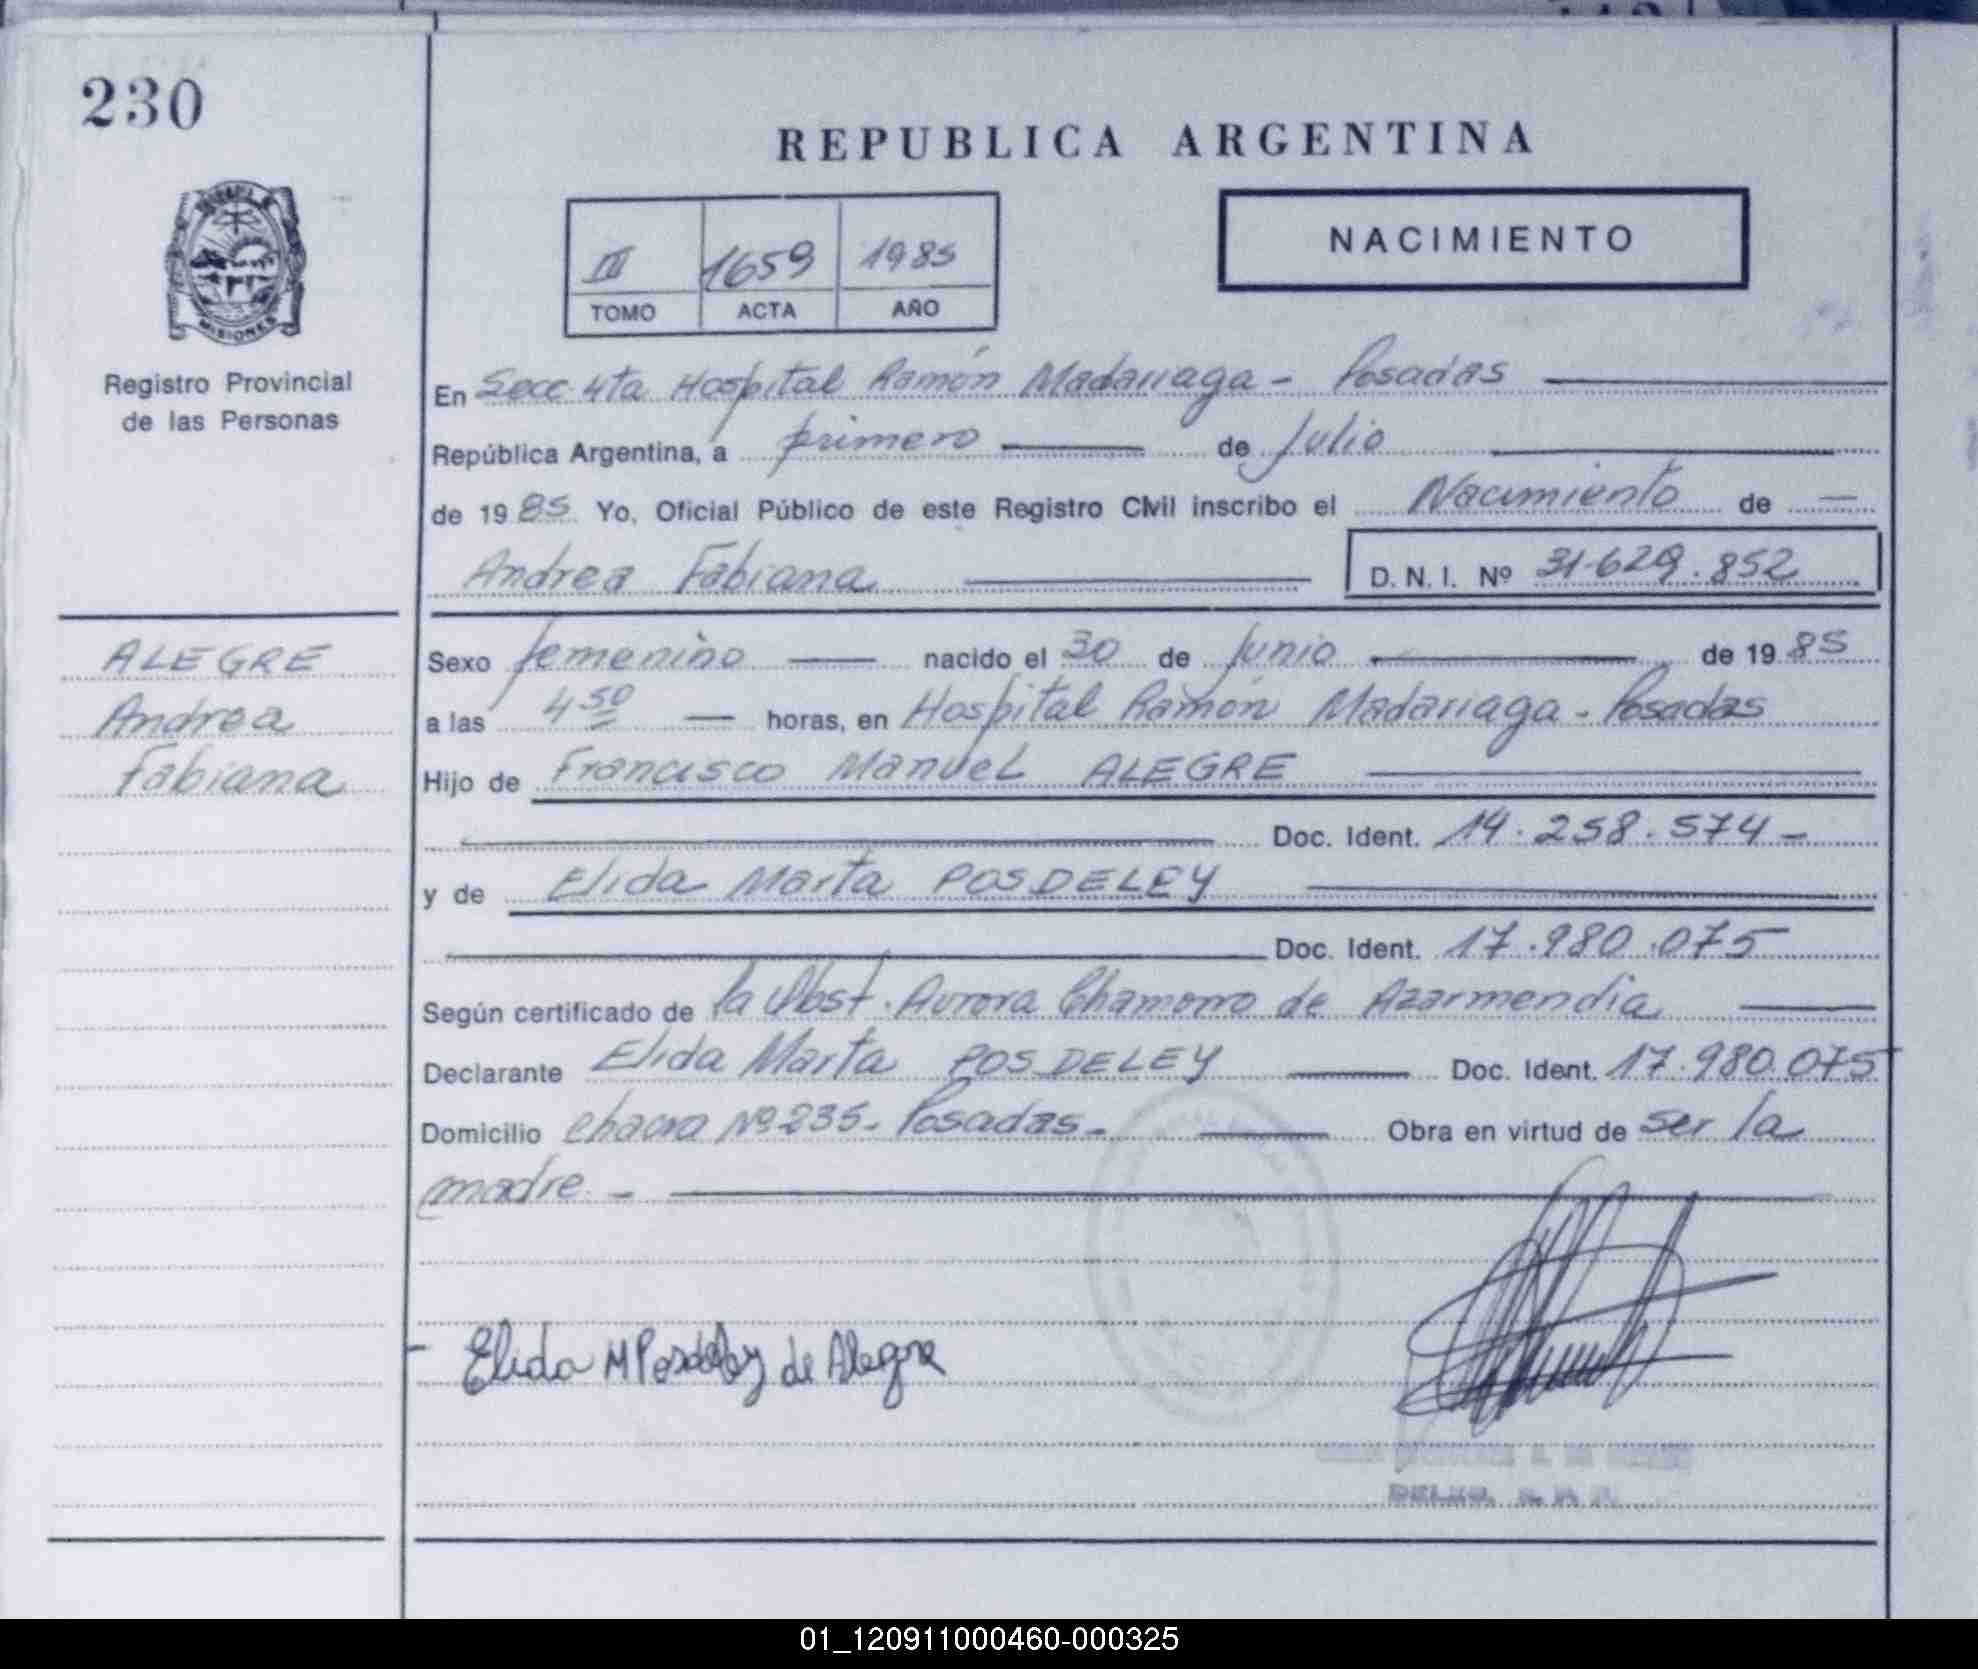 230
REPUBLICA ARGENTINA
MISIONES
Registro Provincial
de las Personas
III 1659 1985
TOMO ACTA AÑO
NACIMIENTO
En Secc. 4ta Hospital Ramón Madariaga - Posadas
República Argentina, a primero de Julio
de 1985 Yo, Oficial Público de este Registro Civil inscribo el Nacimiento de
Andrea Fabiana D.N.I. Nº 31.629.852
ALEGRE
Andrea
Fabiana
Sexo femenino nacido el 30 de Junio de 1985
a las 4 50 horas, en Hospital Ramón Madariaga - Posadas
Hijo de Francisco Manuel ALEGRE
Doc. Ident. 14.258.574 -
y de Elida Marta POSDELEY
Doc. Ident. 17.980.075
Según certificado de la Obst. Aurora Chamorro de Azarmendia
Declarante Elida Marta POSDELEY Doc. Ident. 17.980.075
Domicilio Chacra Nº 235 - Posadas - Obra en virtud de ser la
madre. -
Elida M Posdeley de Alegre
01_120911000460-000325